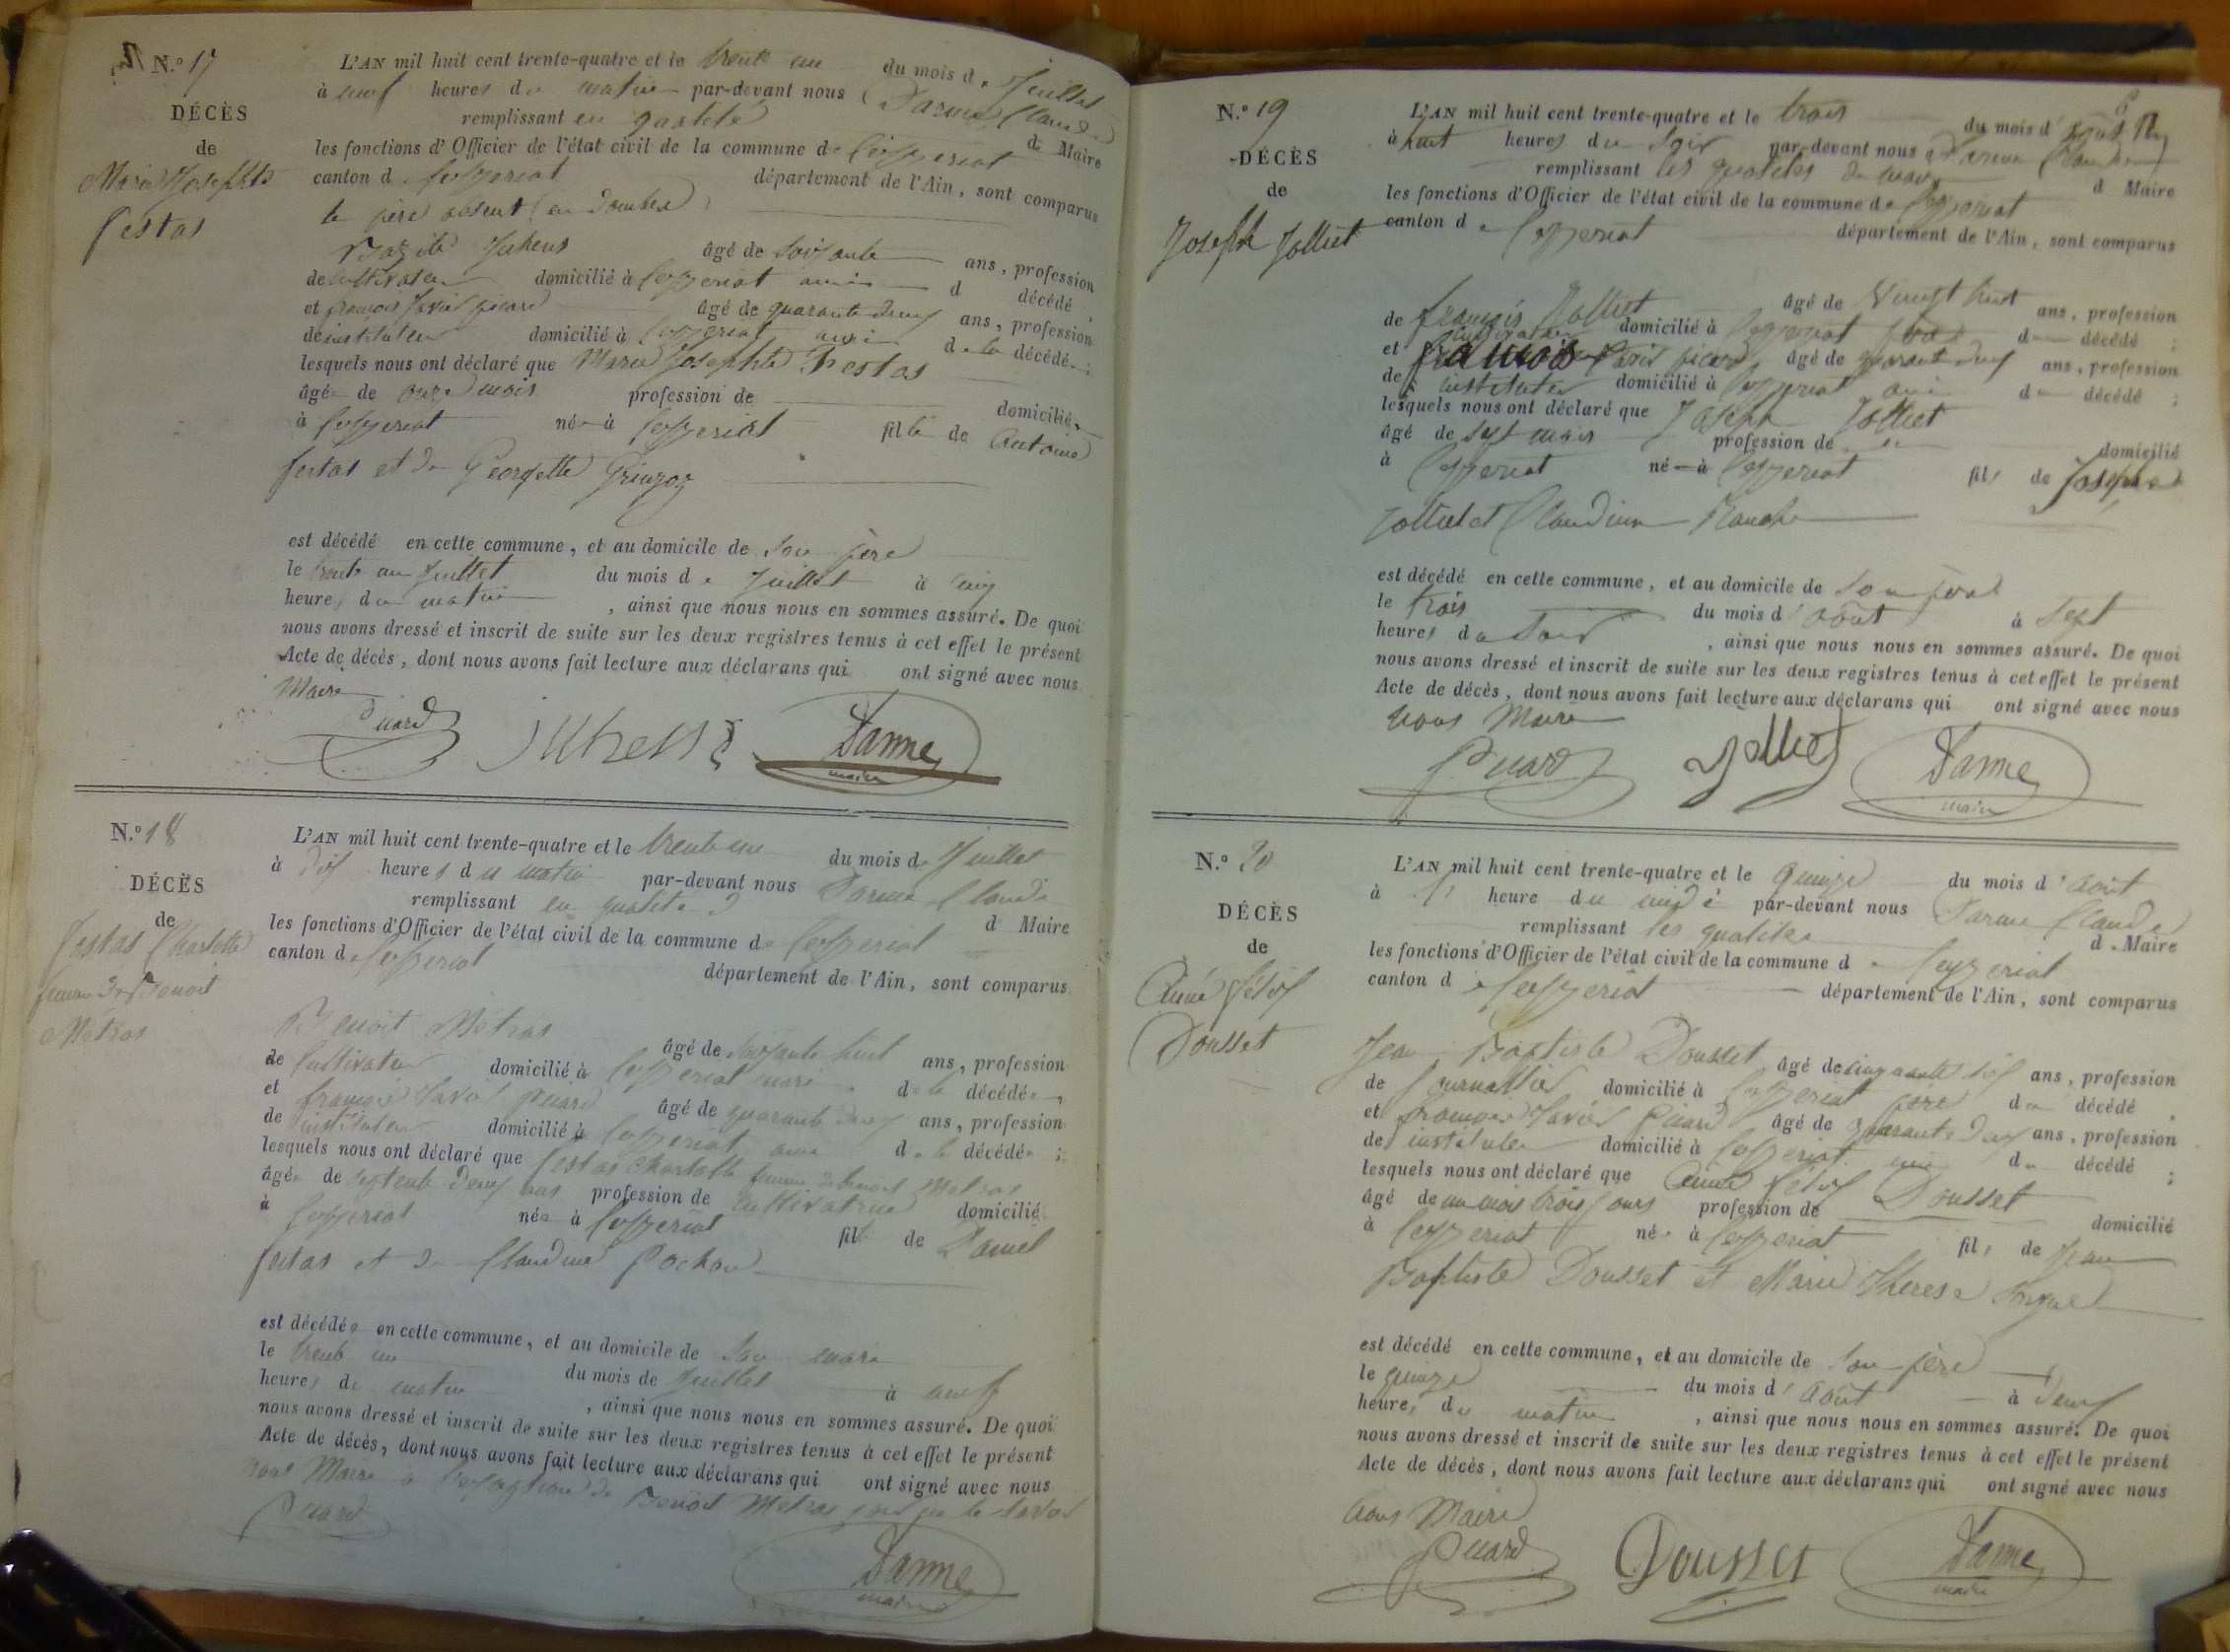 N.º 17
DÉCÈS
de
Marie Josephte
Festas
L'AN mil huit cent trente-quatre et le trente un du mois de Juillet
à neuf heures du matin par-devant nous Darme Claude
remplissant en qualité de Maire
les fonctions d'Officier de l'état civil de la commune de Ceyzeriat
canton de Ceyzeriat département de l'Ain, sont comparus
le père absent
âgé de soixante ans, profession
de cultivateur domicilié à Ceyzeriat ami d décédé
et françois Xavier Picard âgé de quarante deux ans, profession
de instituteur domicilié à Ceyzeriat ami de la décédée ;
lesquels nous ont déclaré que Marie Josephte Festas
âgée de onze mois profession de domiciliée
à Ceyzeriat née à Ceyzeriat fille de Antoine
festas et de Georgette
est décédé en cette commune, et au domicile de son père
le trente un Juillet du mois de Juillet à cinq
heures du matin, ainsi que nous nous en sommes assuré. De quoi
nous avons dressé et inscrit de suite sur les deux registres tenus à cet effet le présent
Acte de décès, dont nous avons fait lecture aux déclarans qui ont signé avec nous
Maire
Picard Darme
maire
N.º 18
DÉCÈS
de
Festas Charlotte
femme de Benoit
Métras
L'AN mil huit cent trente-quatre et le trente un du mois de Juillet
à dix heures du matin par-devant nous Darme Claude
remplissant en qualité d Maire
les fonctions d'Officier de l'état civil de la commune de Ceyzeriat
canton de Ceyzeriat département de l'Ain, sont comparus
Benoit Métras âgé de soixante huit ans, profession
de Cultivateur domicilié à Ceyzeriat mari de la décédée,
et françois Xavier Picard âgé de quarante deux ans, profession
de instituteur domicilié à Ceyzeriat ami de la décédée ;
lesquels nous ont déclaré que festas Charlotte femme de Benoit Métras
âgée de septente deux ans profession de Cultivatrice domiciliée
à Ceyzeriat née à Ceyzeriat fille de Daniel
festas et de Claudine Pochon
est décédée en cette commune, et au domicile de son mari
le trente un du mois de Juillet à neuf
heures du matin, ainsi que nous nous en sommes assuré. De quoi
nous avons dressé et inscrit de suite sur les deux registres tenus à cet effet le présent
Acte de décès, dont nous avons fait lecture aux déclarans qui ont signé avec nous
nous Maire à l'exception de Benoit Métras
Picard
Darme
maire
N.º 19
DÉCÈS
de
Joseph Jolliet
L'AN mil huit cent trente-quatre et le trois du mois d'
à huit heures du soir par-devant nous Darme Claude
remplissant les qualités de maire d Maire
les fonctions d'Officier de l'état civil de la commune de Ceyzeriat
canton de Ceyzeriat département de l'Ain, sont comparus
de françois Jolliet âgé de Vingt huit ans, profession
cultivateur domicilié à Ceyzeriat du décédé ;
et françois Xavier Picard âgé de quarante deux ans, profession
de instituteur domicilié à Ceyzeriat ami du décédé ;
lesquels nous ont déclaré que Joseph Jolliet
âgé de sept mois profession de domicilié
à Ceyzeriat né à Ceyzeriat fils de Joseph
Jolliet et Claudine
est décédé en cette commune, et au domicile de son père
le trois du mois d'août à sept
heures du soir, ainsi que nous nous en sommes assuré. De quoi
nous avons dressé et inscrit de suite sur les deux registres tenus à cet effet le présent
Acte de décès, dont nous avons fait lecture aux déclarans qui ont signé avec nous
nous Maire
Picard Jolliet Darme
maire
N.º 20
DÉCÈS
de
Aimé félix
Dousset
L'AN mil huit cent trente-quatre et le quinze du mois d'août
à heure du midi par-devant nous Darme Claude
remplissant les qualités d Maire
les fonctions d'Officier de l'état civil de la commune d Ceyzeriat
canton d Ceyzeriat département de l'Ain, sont comparus
Jean Baptiste Dousset âgé de cinquante six ans, profession
de Journallier domicilié à Ceyzeriat père du décédé ,
et françois Xavier Picard âgé de quarante deux ans, profession
de instituteur domicilié à Ceyzeriat ami du décédé ;
lesquels nous ont déclaré que Aimé félix Dousset
âgé de un mois trois jours profession de domicilié
à Ceyzeriat né à Ceyzeriat fils de Jean
Baptiste Dousset et Marie Therese
est décédé en cette commune, et au domicile de son père
le quinze du mois d'août à deux
heures du matin, ainsi que nous nous en sommes assuré. De quoi
nous avons dressé et inscrit de suite sur les deux registres tenus à cet effet le présent
Acte de décès, dont nous avons fait lecture aux déclarans qui ont signé avec nous
nous Maire
Picard Dousset Darme
maire